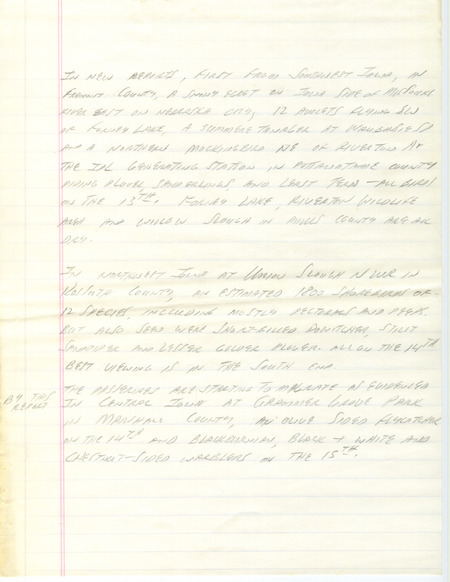 IN NEW REPORTS, FIRST FROM SOUTHWEST IOWA, IN
FREMONT COUNTY, A SNOWY EGRET ON IOWA SIDE OF MISSOURI
RIVER EAST ON NEBRASKA CITY, 12 AVOCETS FLYING SW
OF FORNEY LAKE, A SUMMER TANAGER AT WAUBONSIE SP
AND A NORTHERN MOCKINGBIRD NE OF RIVERTON. AT
THE IPL GENERATING STATION IN POTTAWATTAMIE COUNTY
PIPING PLOVER, SANDERLINGS AND LEAST TERN - ALL BIRDS
ON THE 13TH. FORNEY LAKE, RIVERTON WILDLIFE
AREA AND WILLOW SLOUGH IN MILLS COUNTY ARE ALL
DRY.
IN NORTHWEST IOWA AT UNION SLOUGH NWR IN
KOSSUTH COUNTY, AN ESTIMATED 1800 SHOREBIRDS OF
12 SPECIES, INCLUDING MOSTLY PECTORALS AND PEEPS.
BUT ALSO SEEN WERE SHORT-BILLED DOWITCHER, STILT
SANDPIPER AND LESSER GOLDEN PLOVER. ALL ON THE 14TH
BEST VIEWING IS IN THE SOUTH END.
THE PASSERINES ARE STARTING TO MIGRATE AS EVIDENCED
BY THIS REPORT
IN CENTRAL IOWA AT GRAMMER GROVE PARK
IN MARSHALL COUNTY, AN OLIVE SIDED FLYCATCHER
ON THE 14TH AND BLACKBURNIAN, BLACK + WHITE AND
CHESTNUT-SIDED WARBLERS ON THE 15TH.